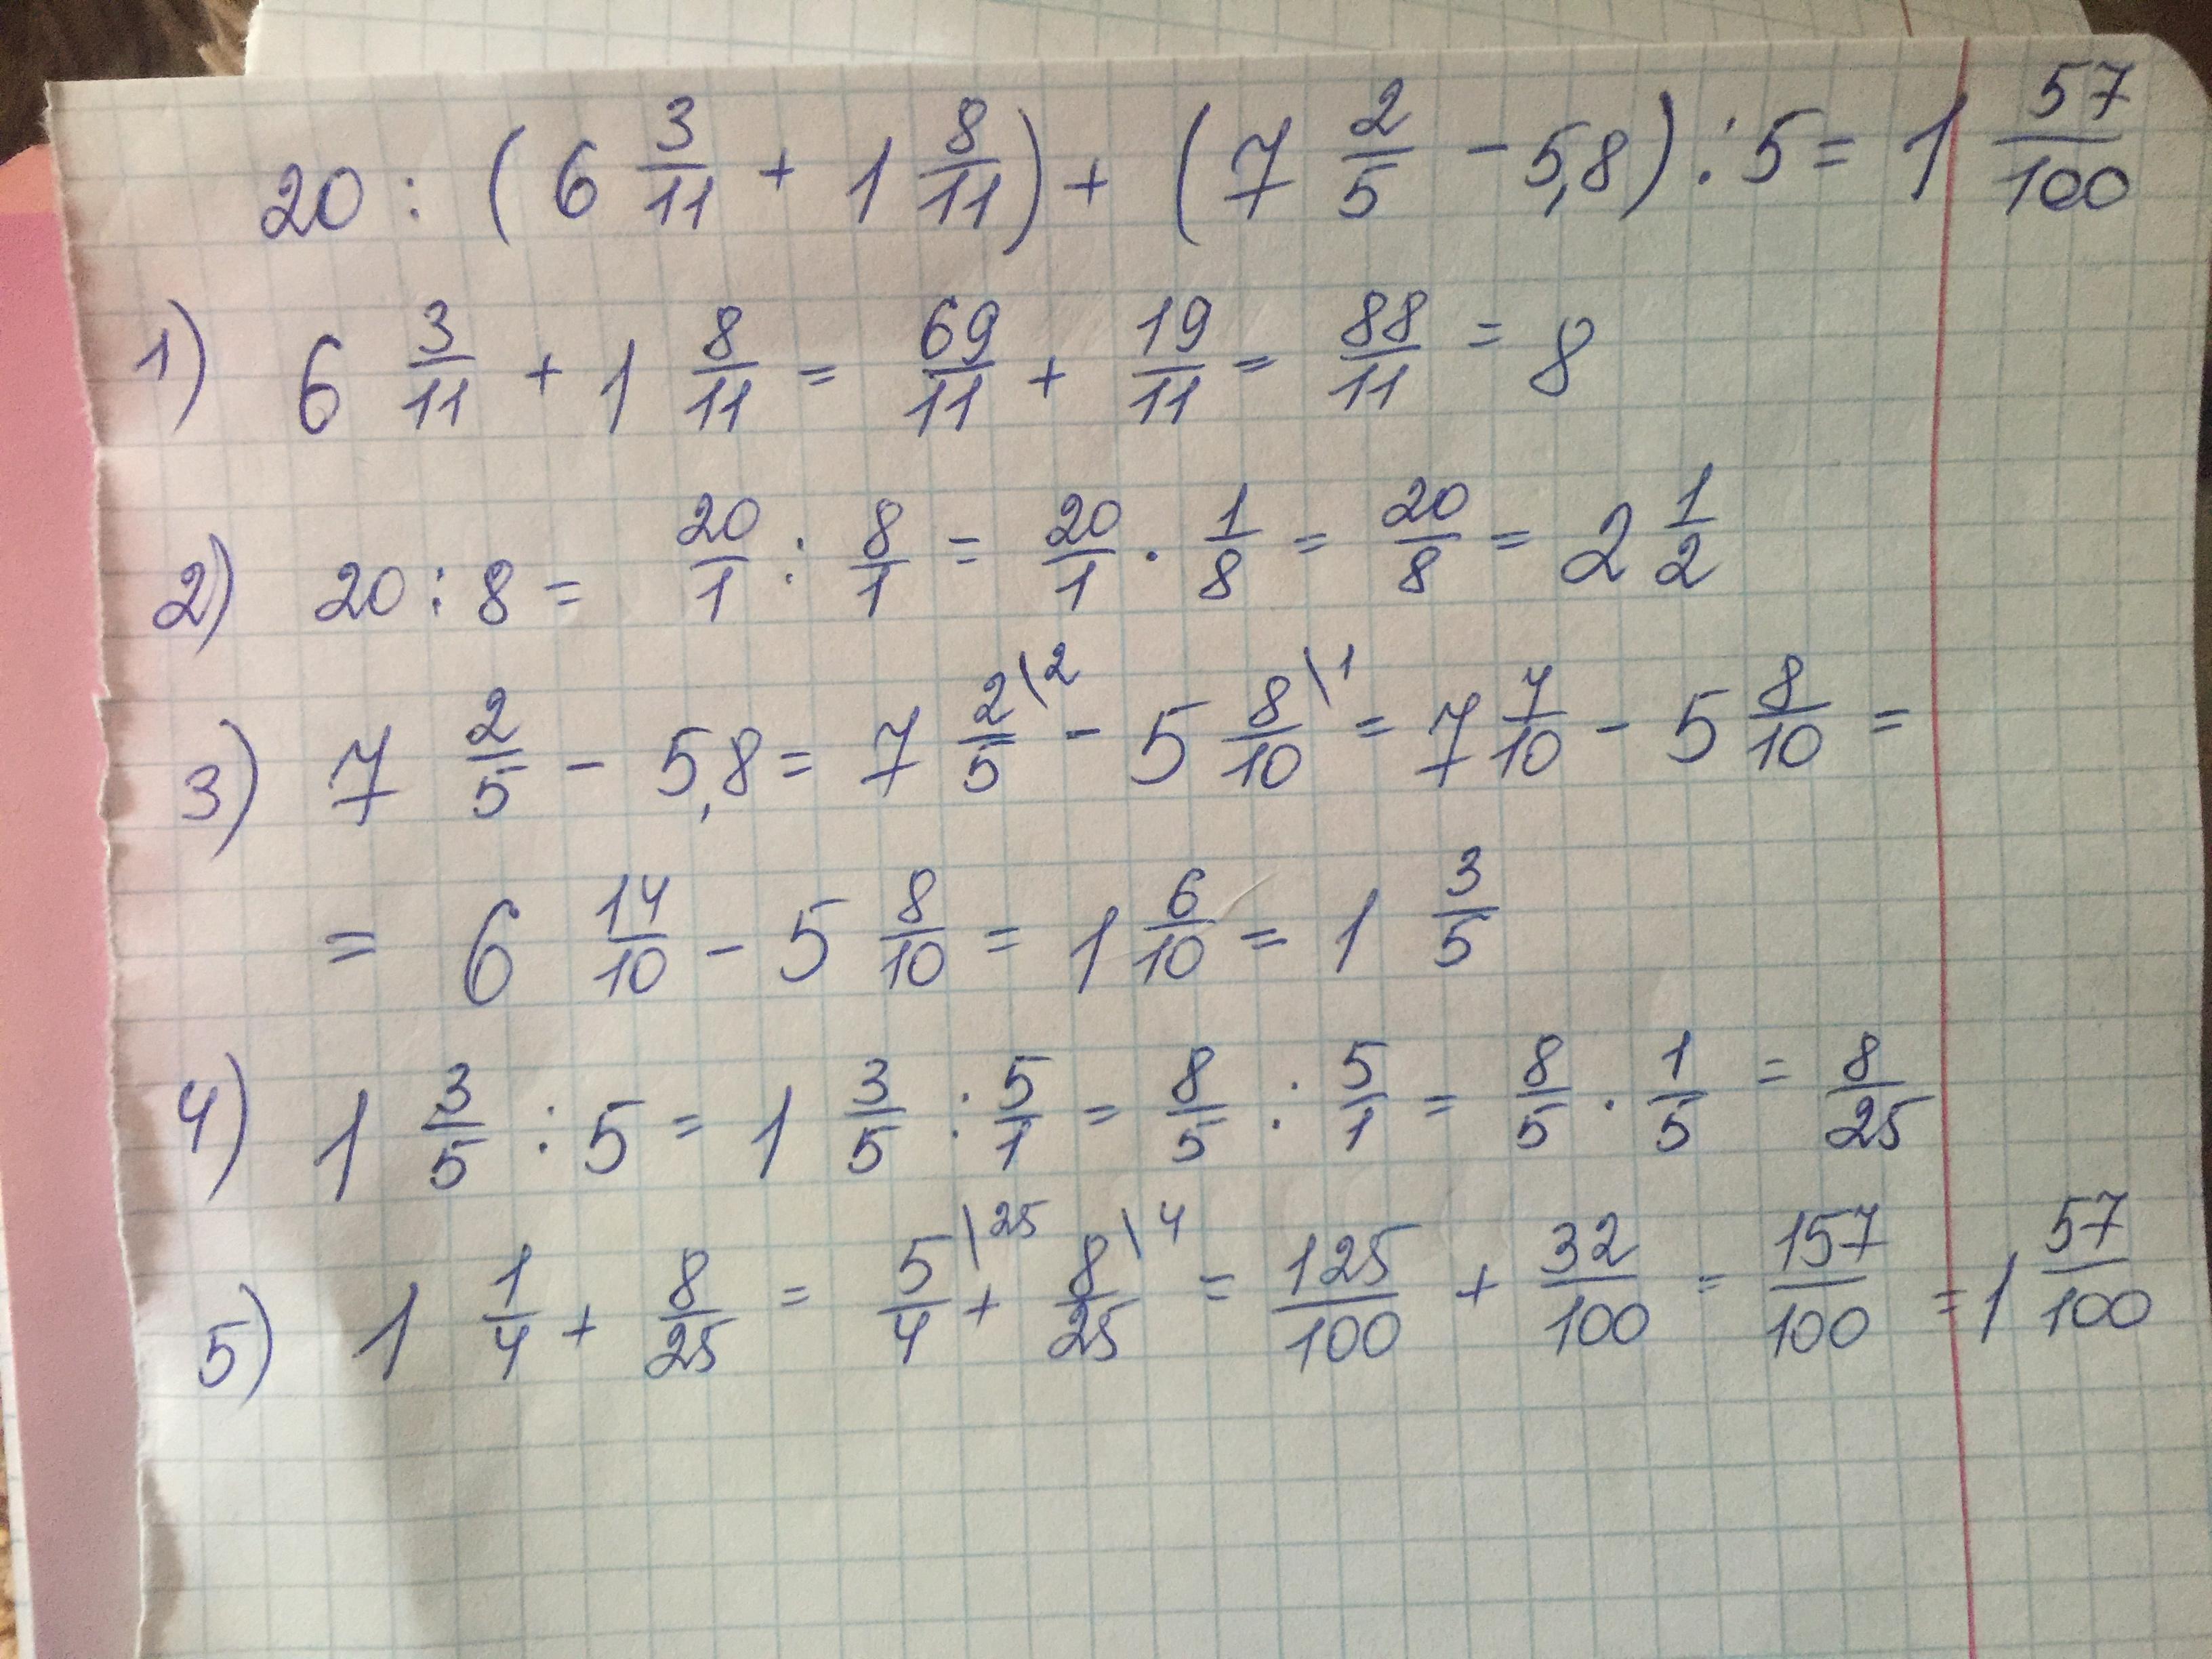 20 : (6 3/11 + 1 8/11) + (7 2/5 - 5,8) : 5 = 1 57/100
1) 6 3/11 + 1 8/11 = 69/11 + 19/11 = 88/11 = 8
2) 20 : 8 = 20/1 : 8/1 = 20/1 · 1/8 = 20/8 = 2 1/2
3) 7 2/5 - 5,8 = 7 2\2/5 - 5 8\1/10 = 7 4/10 - 5 8/10 =
= 6 14/10 - 5 8/10 = 1 6/10 = 1 3/5
4) 1 3/5 : 5 = 1 3/5 : 5/1 = 8/5 : 5/1 = 8/5 · 1/5 = 8/25
5) 1 1/4 + 8/25 = 5\25/4 + 8\4/25 = 125/100 + 32/100 = 157/100 = 1 57/100